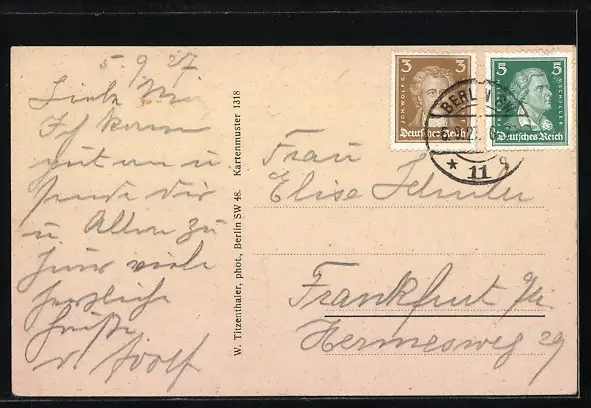 5 9 27
Liebe
Ich kam
gut an u
sende dir
u. Allen zu
viele
herzliche
Grüße
v. Adolf
W. Titzenthaler, phot., Berlin SW 48. Kartenmuster 1318
3
JOH. WOLFG.
Deutsches Reich
5
5
Deutsches Reich
BERLIN
* 11 g
Frau
Elise Schuler
Frankfurt
Hermesweg 29